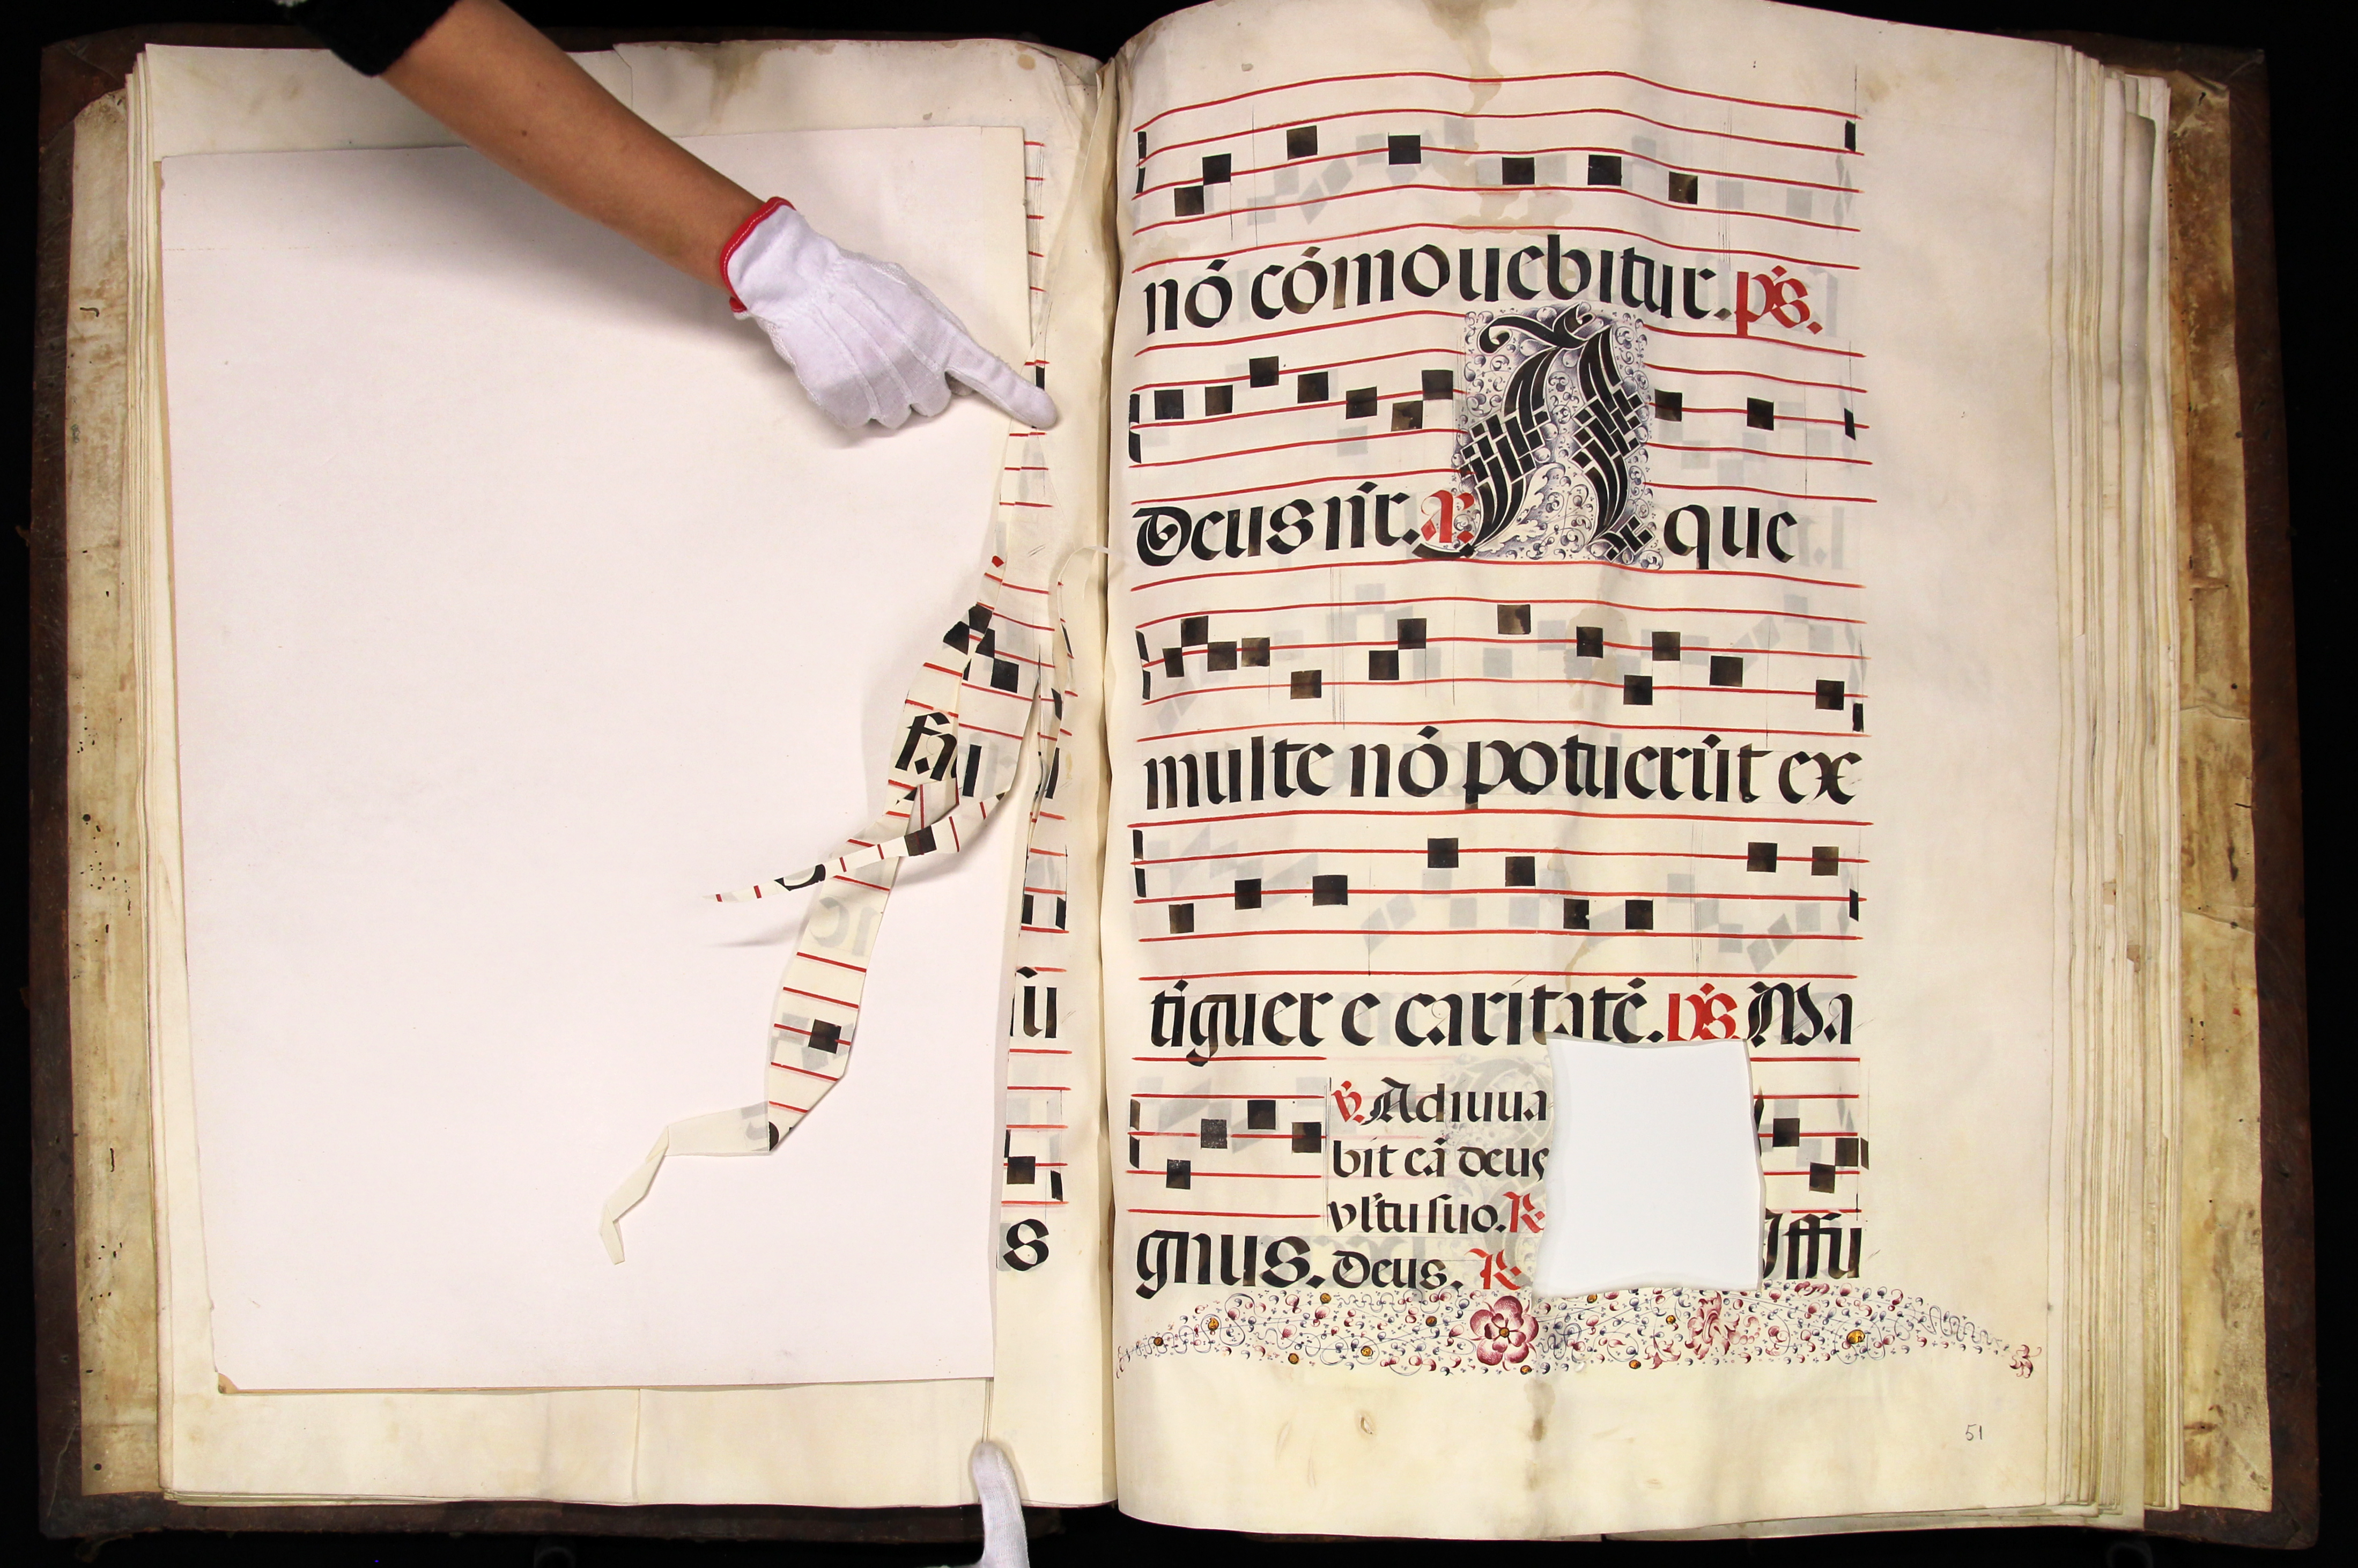 fa
su
s
nó cómouebitur. ps.
Deus nr̃. a. Aque
multe nó potuerũt ex
tiguer e caritatẽ. ps. Ma
v. Adiuua
bit eã deus
vltu suo. R
gnus. Deus. R
Iffu
51